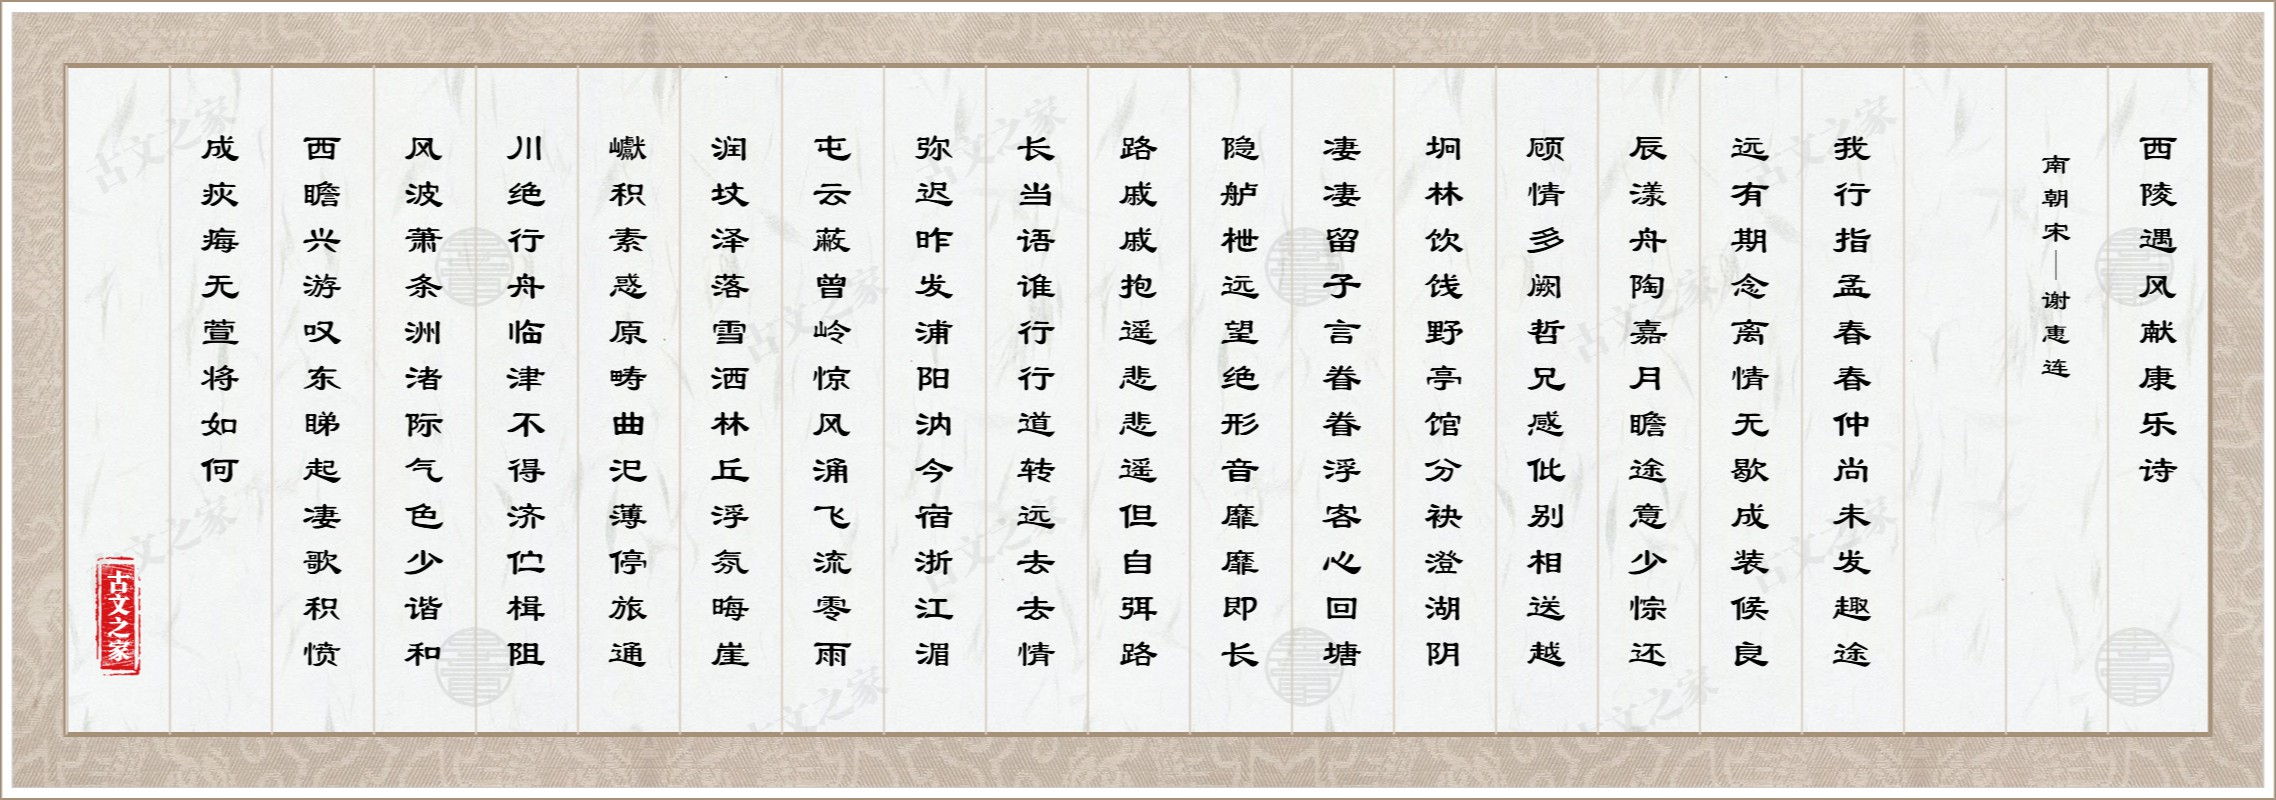 西陵遇风献康乐诗
南朝宋—谢惠连
我行指孟春春仲尚未发趣途
远有期念离情无歇成装候良
辰漾舟陶嘉月瞻途意少悰还
顾情多阙哲兄感仳别相送越
坰林饮饯野亭馆分袂澄湖阴
凄凄留子言眷眷浮客心回塘
隐舻枻远望绝形音靡靡即长
路戚戚抱遥悲悲遥但自弭路
长当语谁行行道转远去去情
弥迟昨发浦阳汭今宿浙江湄
屯云蔽曾岭惊风涌飞流零雨
润坟泽落雪洒林丘浮氛晦崖
巘积素惑原畴曲汜薄停旅通
川绝行舟临津不得济伫楫阻
风波萧条洲渚际气色少谐和
西瞻兴游叹东睇起凄歌积愤
成疢痗无萱将如何
古文之家